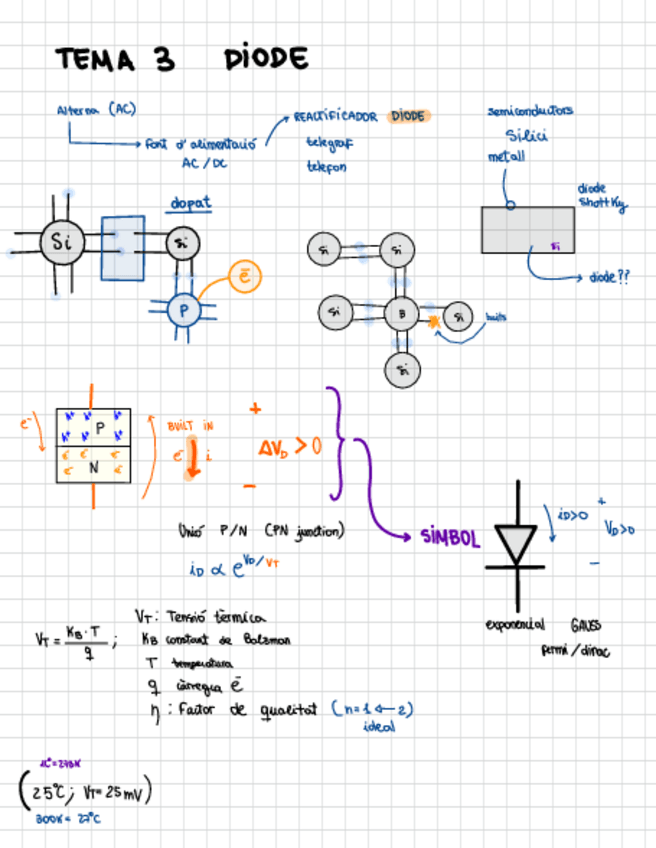 TEMA 3 DIODE
Alterna (AC)
font d'alimentació
AC/DC
REACTIFICADOR DIODE
telegraf
telefon
semiconductors
Silici
metall
diode
Shottky
Si
diode??
dopat
Si
Si
P
ē
Si
Si
Si
B
Si
Si
buits
e-
h+ h+ h+
h+ h+ h+
P
ē ē ē
ē ē
N
BUILT IN
ē i
+
ΔVD > 0
-
SÍMBOL
iD>0
+
VD>0
-
Unió P/N (PN junction)
iD ∝ e^VD/VT
exponencial GAUSS
fermi/dirac
VT = KB·T / q ;
VT: Tensió tèrmica
KB constant de Bolzman
T temperatura
q càrrega ē
η: Factor de qualitat (n=1 ← 2)
ideal
(25°C; VT=25mV)
300K = 27°C